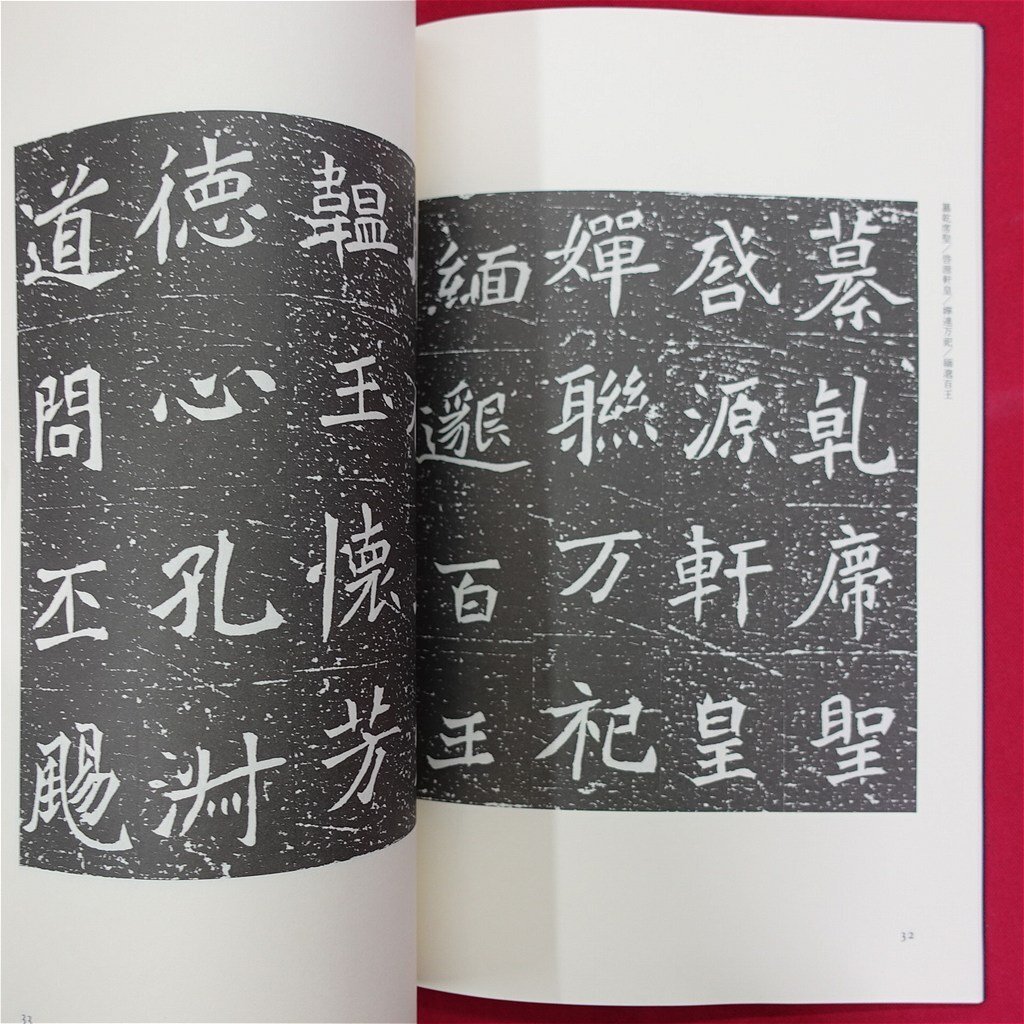 纂乾席聖
啓源軒皇
嬋聯万祀
緬邈百王
纂乾席聖／啓源軒皇／嬋連万祀／緬邈百王
32
韞玉懷芳
德心孔淵
道問丕颺
33